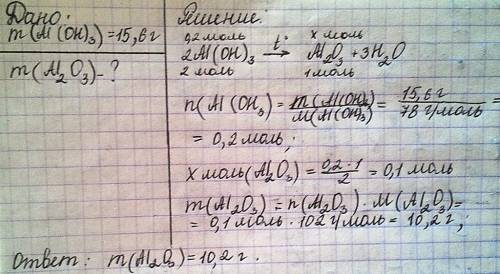 Дано:
m(Al(OH)₃)=15,6г
m(Al₂O₃)-?
Решение:
0,2моль х моль
2Al(OH)₃ —t°→ Al₂O₃+3H₂O
2 моль 1моль
n(Al(OH₃)=m(Al(OH)₃)/M(Al(OH)₃)=15,6г/78 г/моль=
=0,2моль;
х моль(Al₂O₃)=0,2·1/2=0,1моль
m(Al₂O₃)=n(Al₂O₃)·M(Al₂O₃)=
=0,1моль·102г/моль=10,2г;
Ответ: m(Al₂O₃)=10,2г.